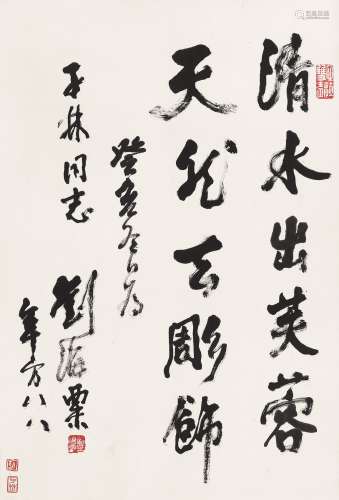 清水出芙蓉
天然去雕飾
癸亥冬日為
平林同志
劉海粟
年方八八